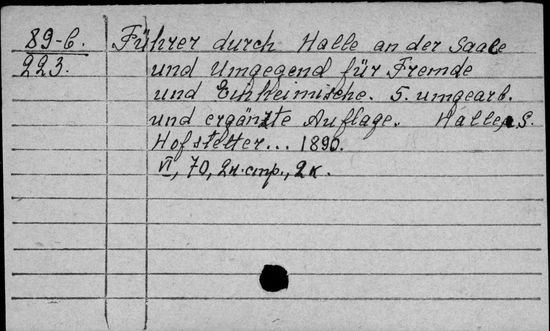 89-6. Führer durch Halle an der Saale
223. und Umgegend für Fremde
und Einheimische. 5. umgearb.
und ergänzte Auflage. Halle a S.
Hofstetter... 1890.
VI, 70, 2 н. стр., 2 к.